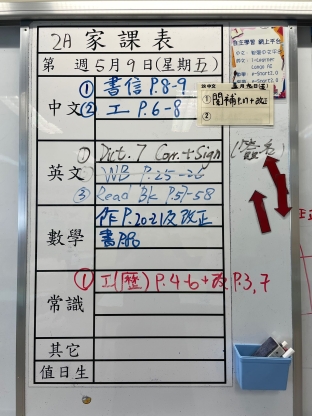 2A 家課表
第 週 5月9日(星期五)
中文
① 書信 P.8-9
② 工 P.6-8
英文
① Dict. 7 Corr. + Sign
② WB P.25-26
③ Read Bk P.57-58
數學
作 P.20,21及改正
書
常識
① 工(歷) P.4-6+改 P.3,7
其它
值日生
自主學習 網上平台
①
②